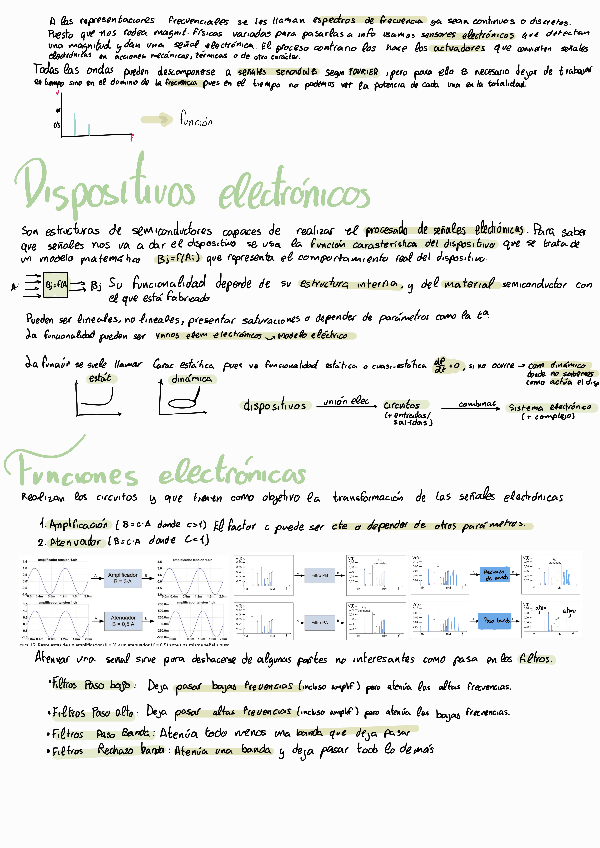 A las representaciones frecuenciales se les llaman espectros de frecuencia ya sean continuos o discretos.
Puesto que nos rodea magnit. físicas variadas para pasarlas a info usamos sensores electrónicos que detectan
una magnitud y dan una señal electrónica. El proceso contrario los hace los actuadores que convierten señales
electrónicas en acciones mecánicas, térmicas o de otro carácter.
Todas las ondas pueden descomponerse a señales senoidales según FOURIER, pero para ello es necesario dejar de trabajar
en tiempo sino en el dominio de la frecuencia pues en el tiempo no podemos ver la potencia de cada una en la totalidad.
función
Dispositivos electrónicos
Son estructuras de semiconductores capaces de realizar el procesado de señales electrónicas. Para saber
que señales nos va a dar el dispositivo se usa la función característica del dispositivo que se trata de
un modelo matemático Bj=f(Ai) que representa el comportamiento real del dispositivo.
A Bj=f(A) Bj Su funcionalidad depende de su estructura interna, y del material semiconductor con
el que está fabricado
Pueden ser lineales, no lineales, presentar saturaciones o depender de parámetros como la tª
La funcionalidad pueden ser elem electrónicos → modelo eléctrico
La función se suele llamar Carac estática pues va funcionalidad estática o cuasi-estática =0, si no ocurre → carac dinámica
donde no sabemos
como actúa el disp
estát dinámica
dispositivos unión elec circuitos combinar sistema electrónico
(+ entradas/ (+ complejo)
salidas)
Funciones electrónicas
Realizan los circuitos y que tienen como objetivo la transformación de las señales electrónicas
1. Amplificación (B=c·A donde c>1) El factor c puede ser cte o depender de otros parámetros.
2. Atenuador (B=c·A donde c<1)
Amplificador
B = 2·A
Rechazo
de banda
Atenuador
B = 0,5·A
Paso banda
Atenuar una señal sirve para deshacerse de algunas partes no interesantes como pasa en los filtros.
• Filtros Paso bajo: Deja pasar bajas frecuencias (incluso amplif) pero atenúa las altas frecuencias.
• Filtros Paso alto: Deja pasar altas frecuencias (incluso amplif) pero atenúa las bajas frecuencias.
• Filtros Paso Banda: Atenúa todo menos una banda que deja pasar
• Filtros Rechazo banda: Atenúa una banda y deja pasar todo lo demás